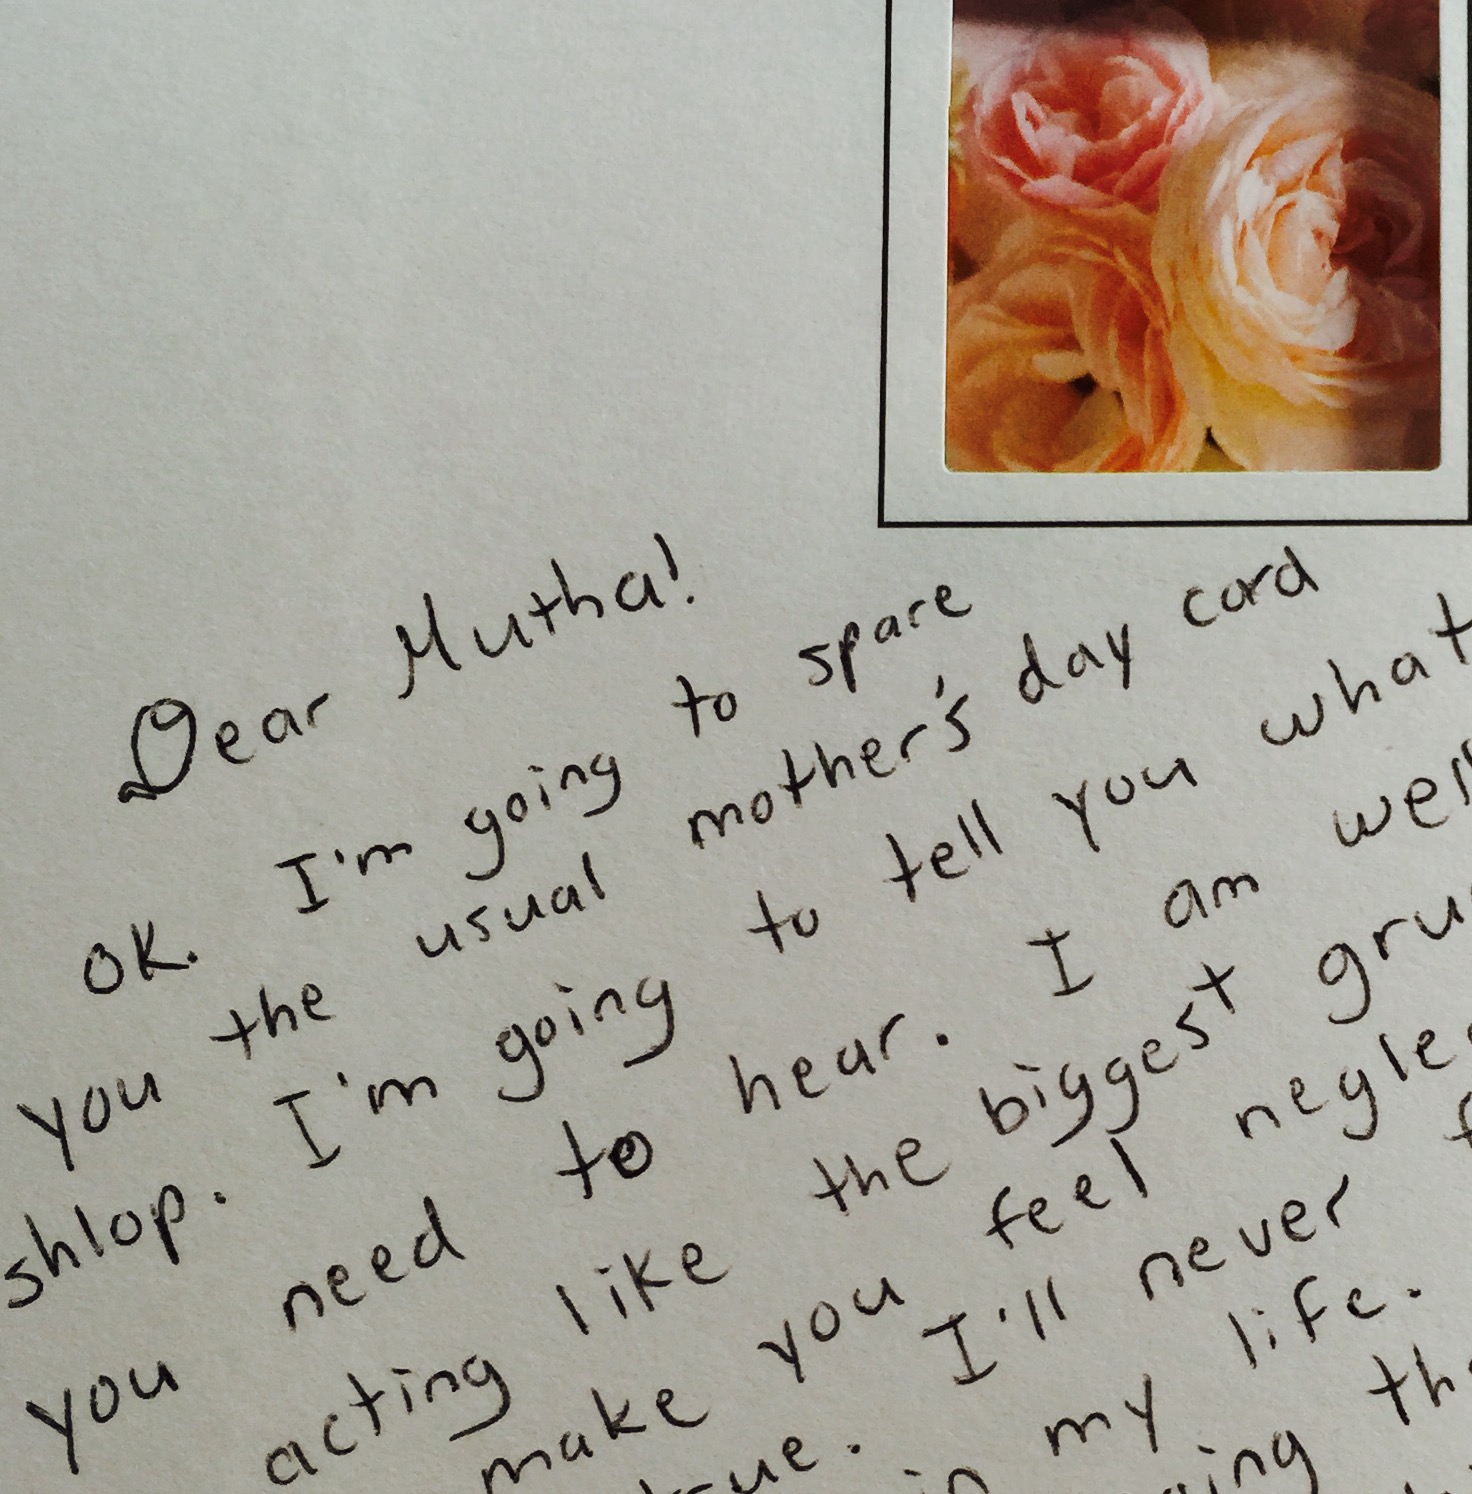 Dear Mutha!
OK. I'm going to spare
you the usual mother's day card
shlop. I'm going to tell you what
you need to hear. I am well
acting like the biggest
make you feel
true. I'll never
in my life.